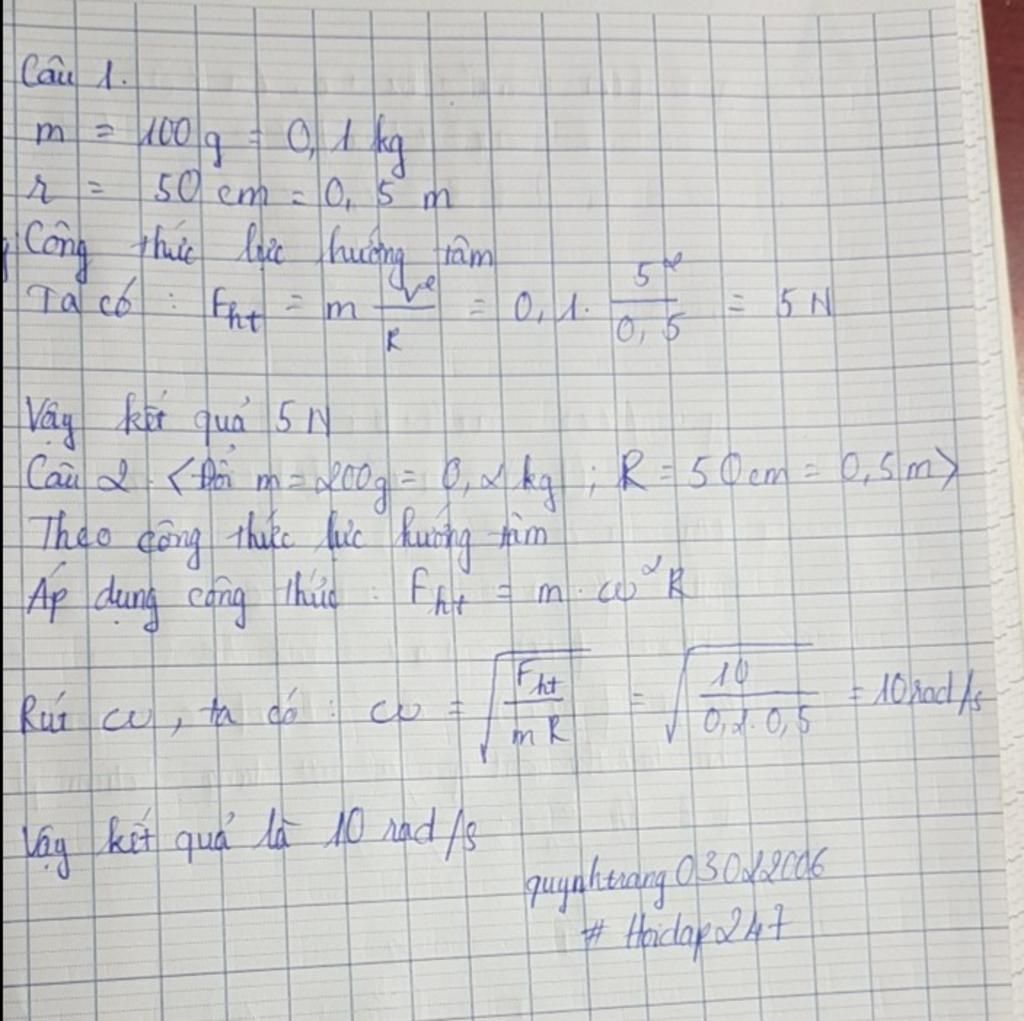 Câu 1.
m = 100 g = 0,1 kg
r = 50 cm = 0,5 m
Công thức lực hướng tâm
Ta có : Fht = m v²/R = 0,1. 5²/0,5 = 5 N
Vậy kết quả 5 N
Câu 2. <Đổi m = 200g = 0,2 kg ; R = 50 cm = 0,5 m>
Theo công thức lực hướng tâm
Áp dụng công thức : Fht = m . ω² R
Rút ω, ta có : ω = √(Fht/mR) = √(10/0,2.0,5) = 10 rad/s
Vậy kết quả là 10 rad/s
quynhtrang03022006
# Hoidap247